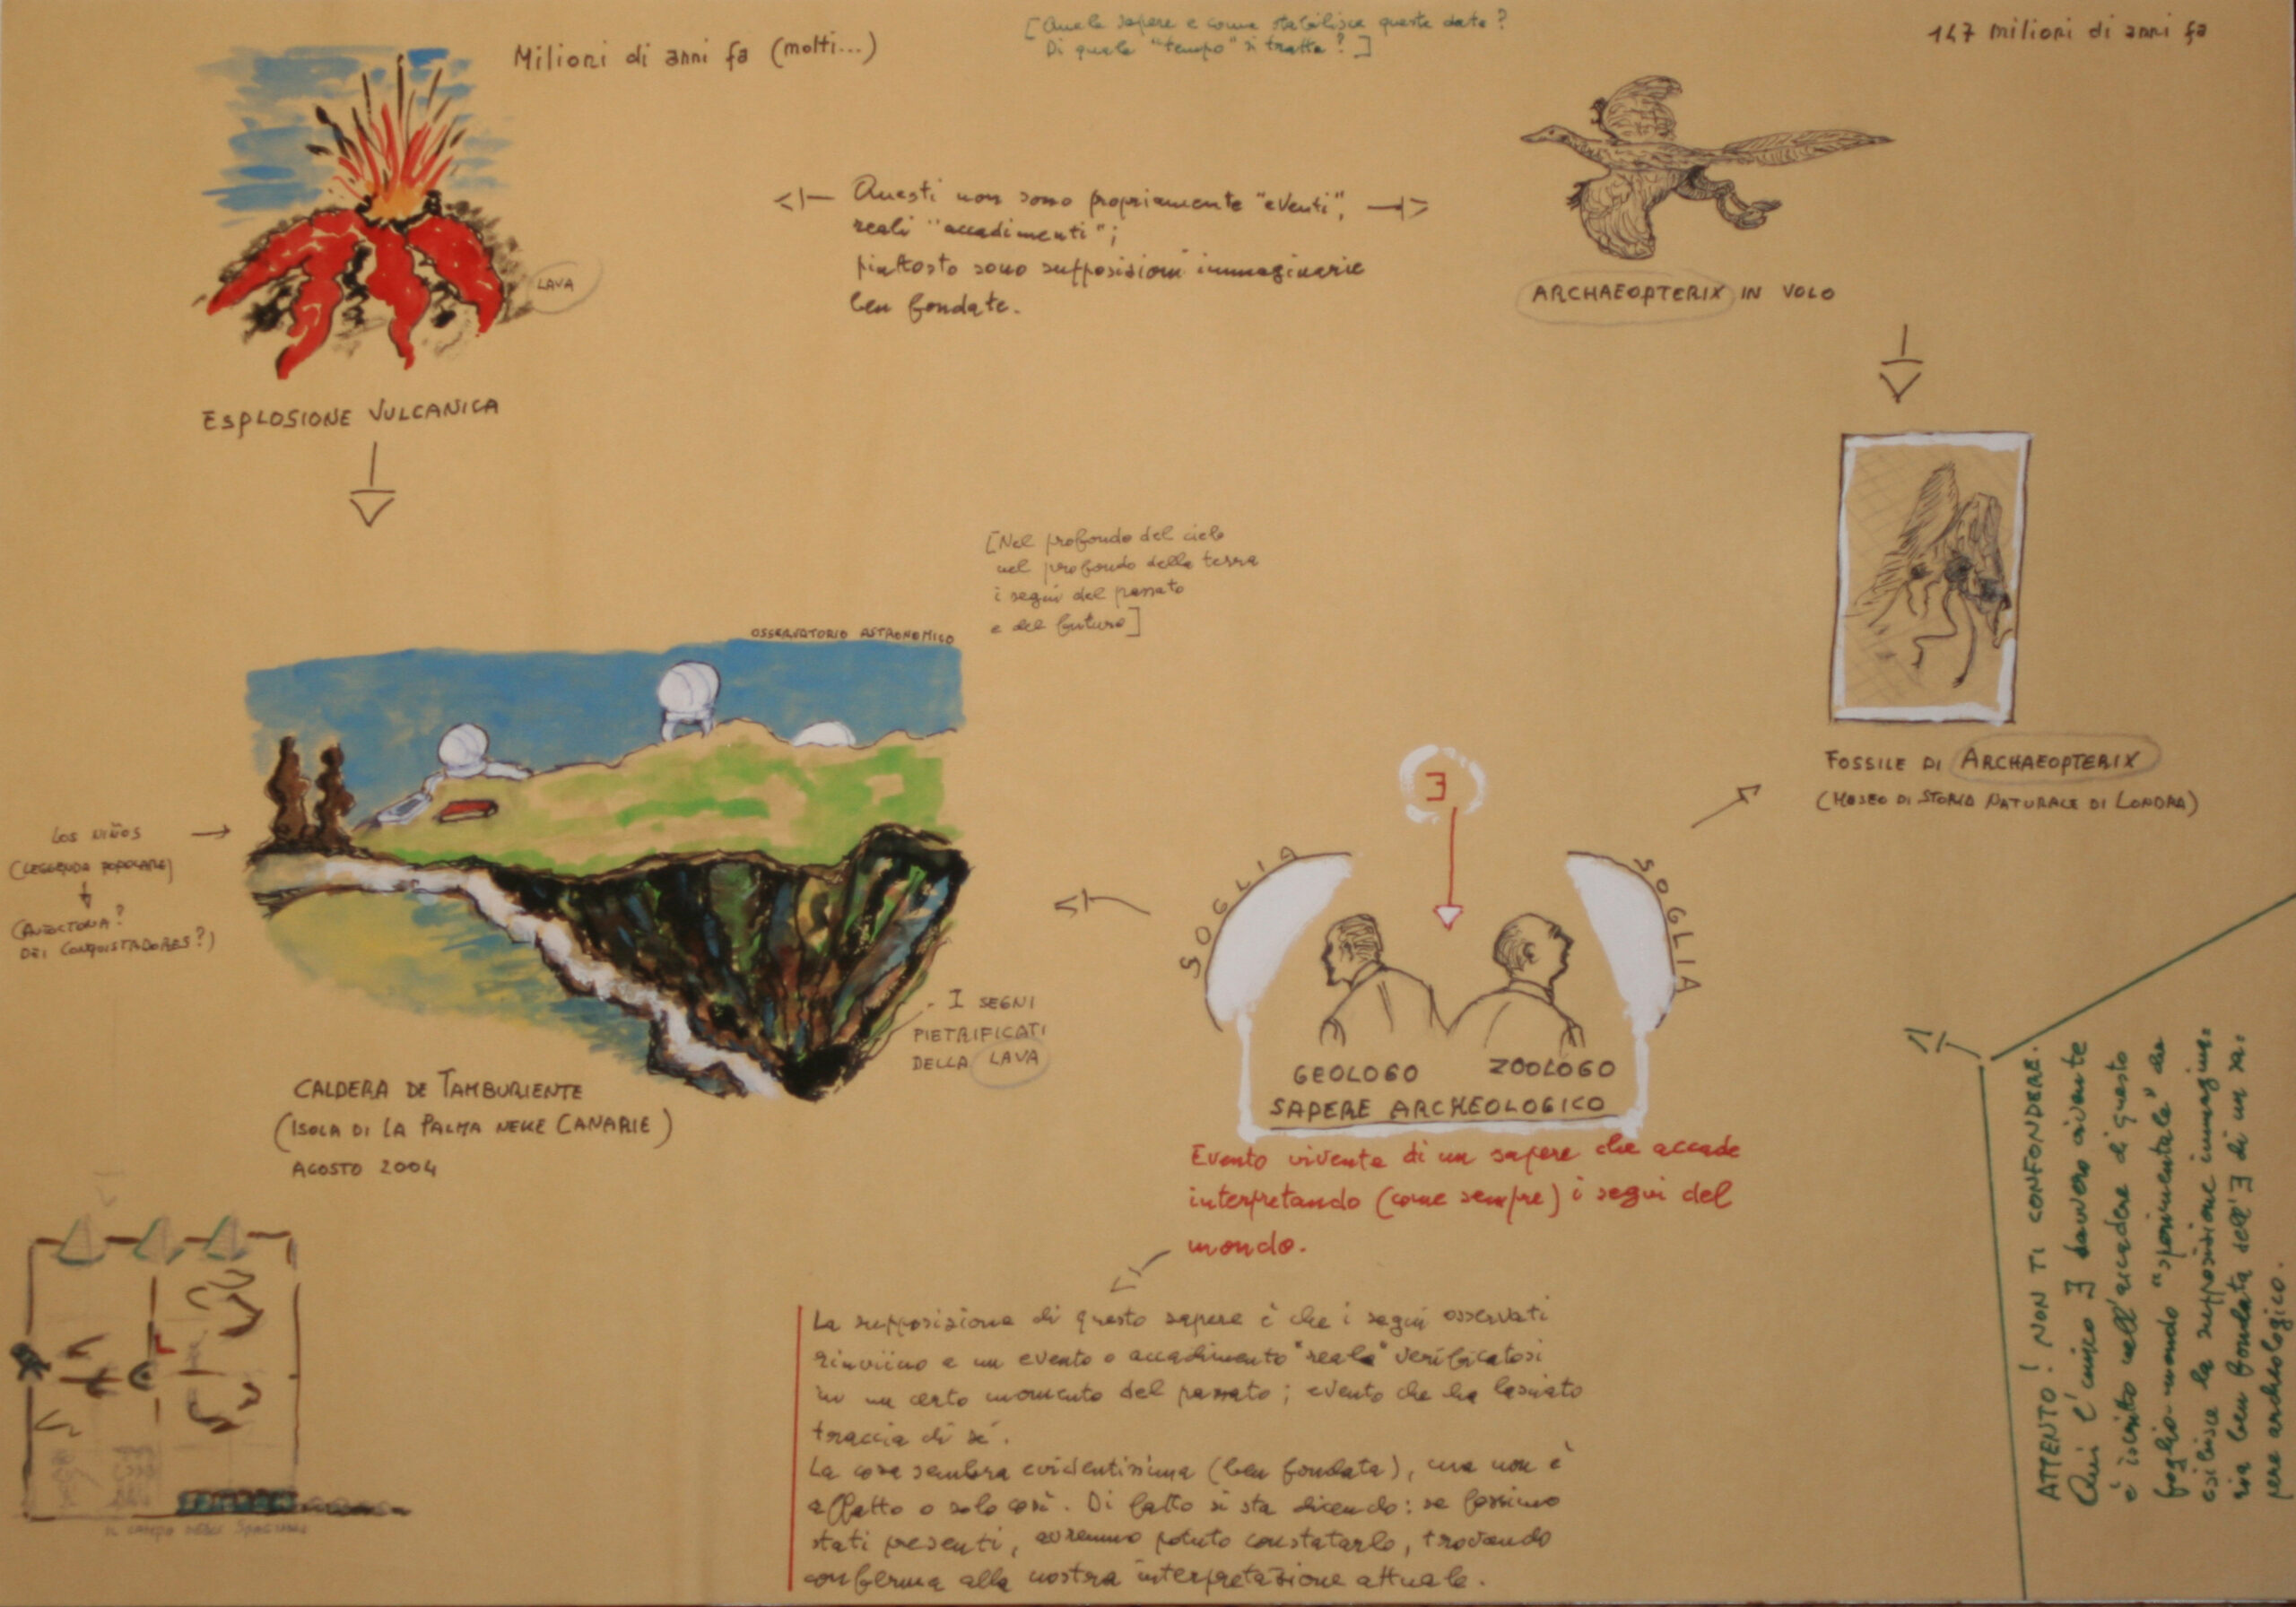 Milioni di anni fa (molti...)
[Quale sapere e come stabilisce queste date?
Di quale "tempo" si tratta?]
147 milioni di anni fa
LAVA
ESPLOSIONE VULCANICA
Questi non sono propriamente "eventi",
reali "accadimenti";
piuttosto sono supposizioni immaginarie
ben fondate.
ARCHAEOPTERIX IN VOLO
[Nel profondo del cielo
nel profondo della terra
i segni del passato
e del futuro]
OSSERVATORIO ASTRONOMICO
FOSSILE DI ARCHAEOPTERIX
(MUSEO DI STORIA NATURALE DI LONDRA)
LOS NIÑOS
(LEGGENDA POPOLARE)
(AUTOCTONA?
DEI CONQUISTADORES?)
I SEGNI
PIETRIFICATI
DELLA LAVA
CALDERA DE TAMBURIENTE
(ISOLA DI LA PALMA NELLE CANARIE)
AGOSTO 2004
Ǝ
SOGLIA
SOGLIA
GEOLOGO
ZOOLOGO
SAPERE ARCHEOLOGICO
Evento vivente di un sapere che accade
interpretando (come sempre) i segni del
mondo.
La supposizione di questo sapere è che i segni osservati
rinviino a un evento o accadimento "reale" verificatosi
in un certo momento del passato; evento che ha lasciato
traccia di sé.
La cosa sembra evidentissima (ben fondata), ma non è
affatto o solo così. Di fatto si sta dicendo: se fossimo
stati presenti, avremmo potuto constatarlo, trovando
conferma alla nostra interpretazione attuale.
ATTENTO! NON TI CONFONDERE.
Qui l'unico Ǝ davvero vivente
è iscritto nell'accadere di questo
foglio-mondo "sperimentale" che
esibisce la supposizione immagina-
ria ben fondata dell'Ǝ di un sa-
pere archeologico.